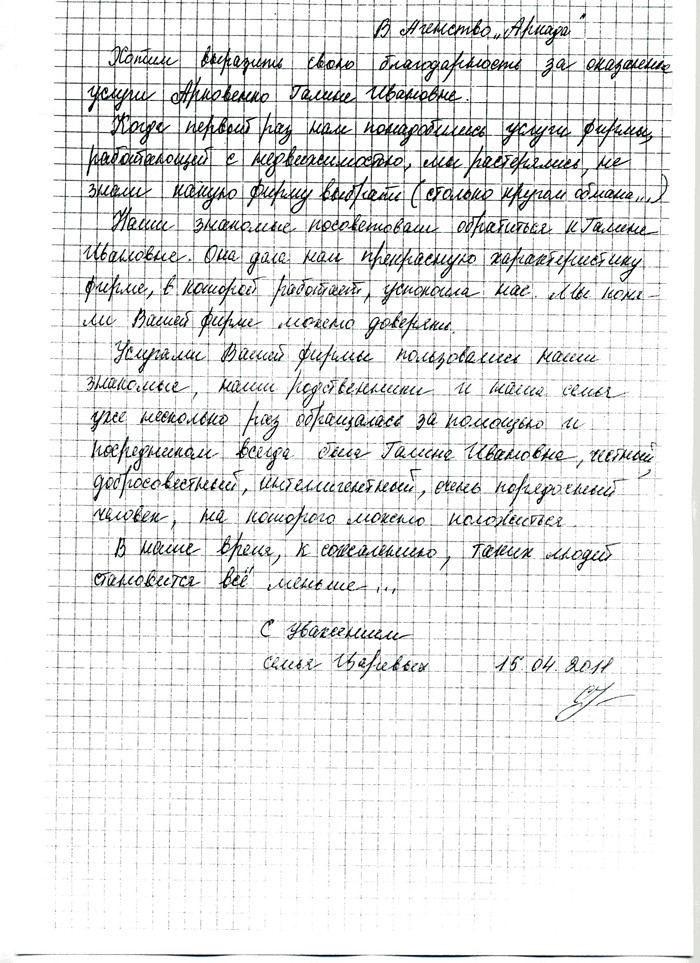 В Агенство „Ариада"
Хотим выразить свою благодарность за оказанные
услуги Арновенко Галине Ивановне.
Когда первый раз нам понадобились услуги фирмы,
работающей с недвижимостью, мы растерялись, не
знали какую фирму выбрать (столько кругом обмана...)
Наши знакомые посоветовали обратиться к Галине
Ивановне. Она дала нам прекрасную характеристику
фирме, в которой работает, успокоила нас. Мы поня-
ли Вашей фирме можно доверять.
Услугами Вашей фирмы пользовались наши
знакомые, наши родственники и наша семья
уже несколько раз обращалась за помощью и
посредником всегда была Галина Ивановна, честный,
добросовестный, интеллигентный, очень порядочный
человек, на которого можно положиться.
В наше время, к сожалению, таких людей
становится всё меньше...
С уважением
семья Царевых 15.04.2011